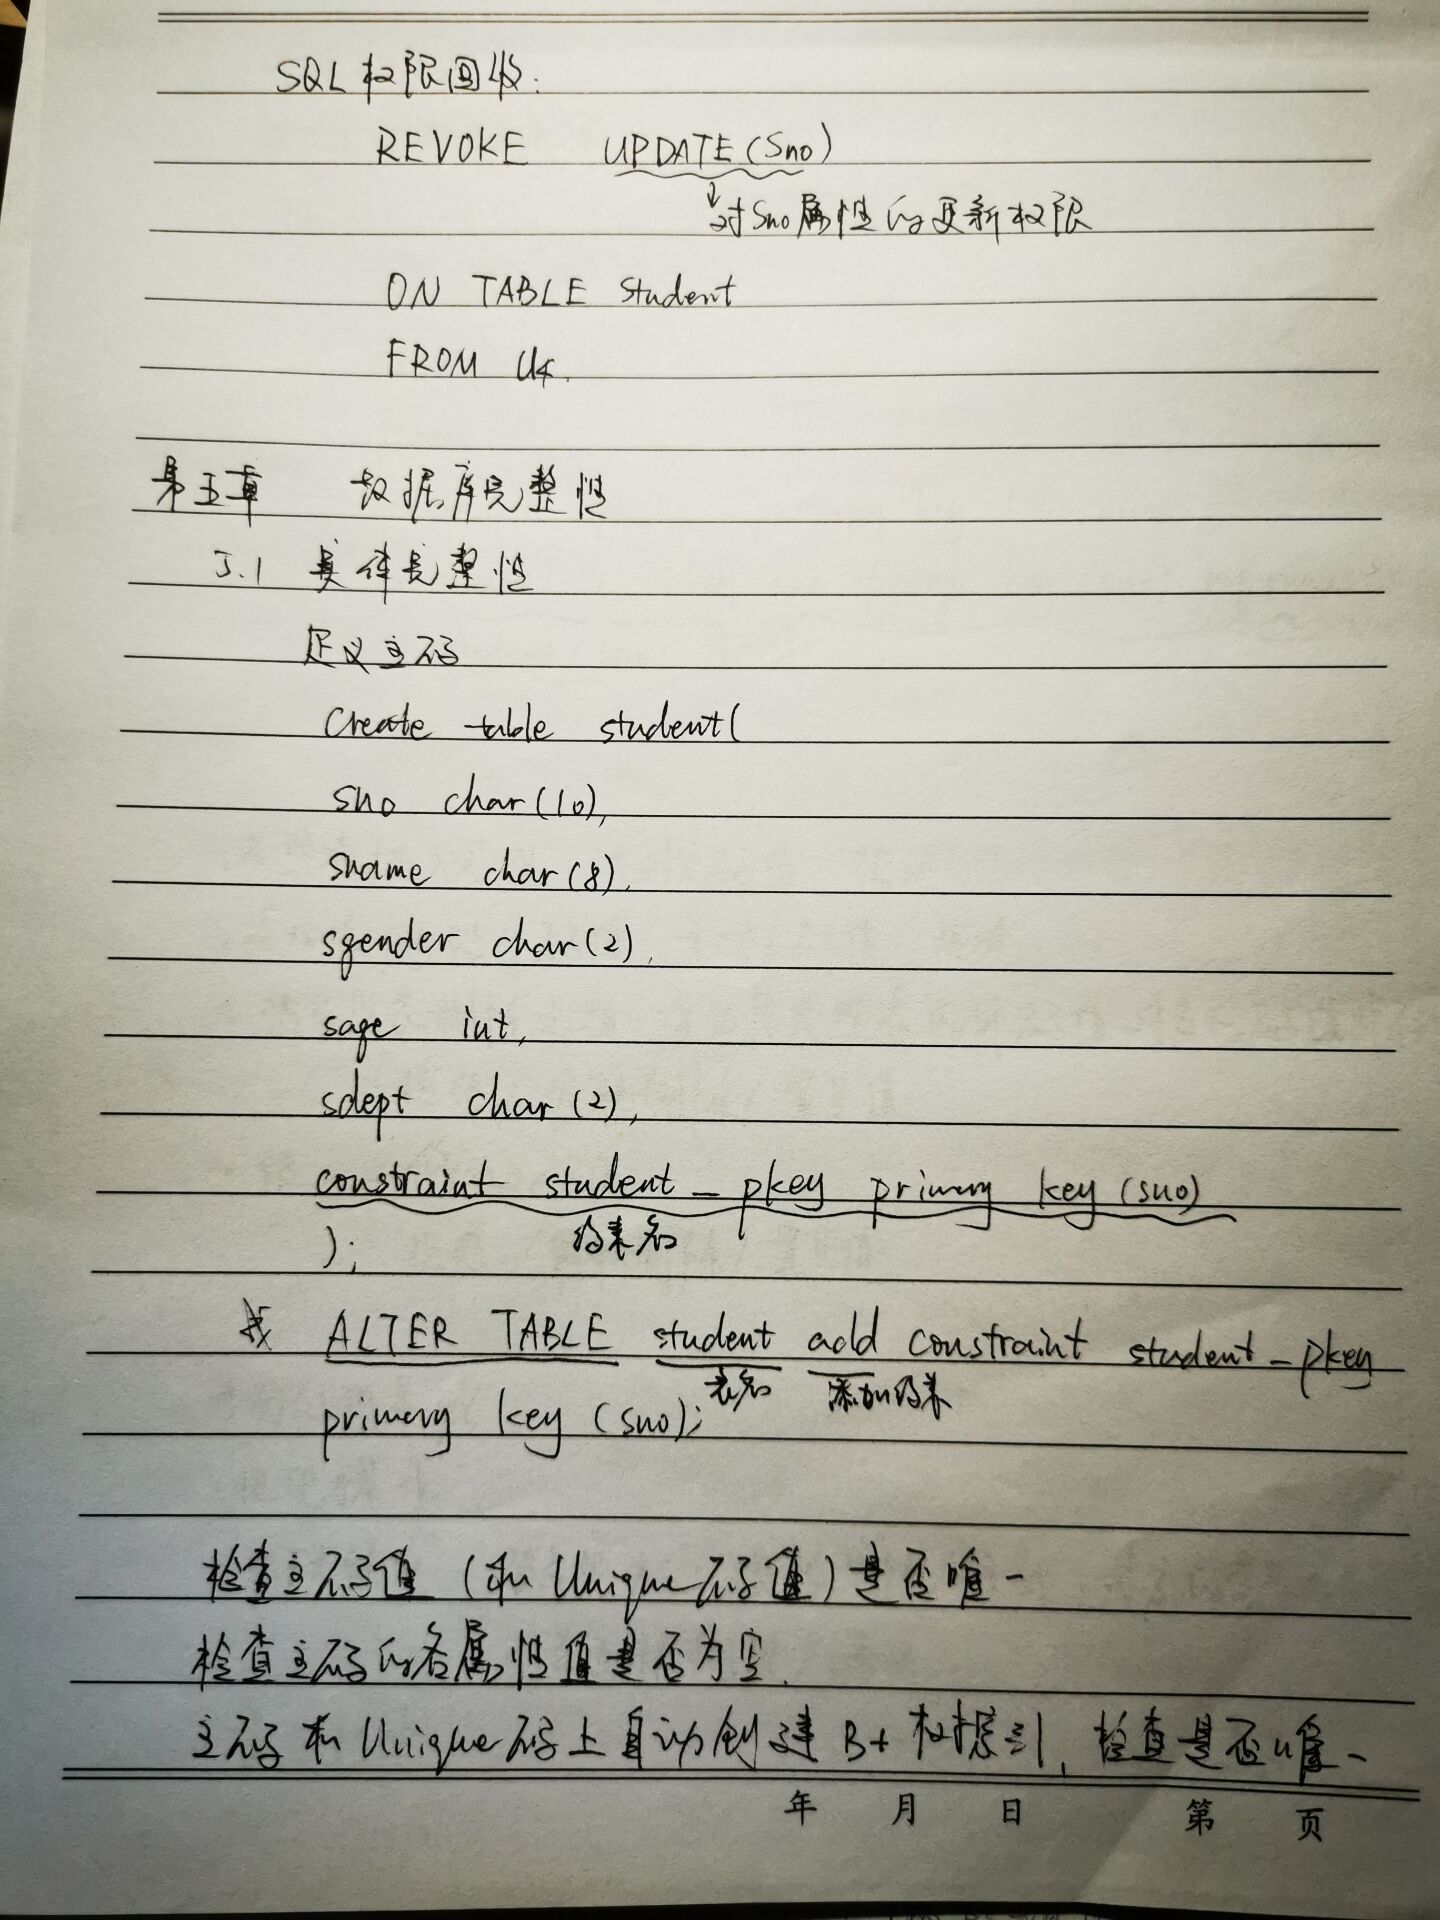 SQL权限回收:
REVOKE UPDATE(Sno)
↓对Sno属性的更新权限
ON TABLE Student
FROM U4.
第五章 数据库完整性
5.1 实体完整性
定义主码
Create table student(
sno char(10),
sname char(8),
sgender char(2),
sage int,
sdept char(2),
constraint student_pkey primary key(sno)
约束名
);
或 ALTER TABLE student add constraint student_pkey
表名 添加约束
primary key(sno);
检查主码值(和Unique码值)是否唯一
检查主码的各属性值是否为空.
主码和Unique码上自动创建B+树索引,检查是否唯一
年 月 日 第 页